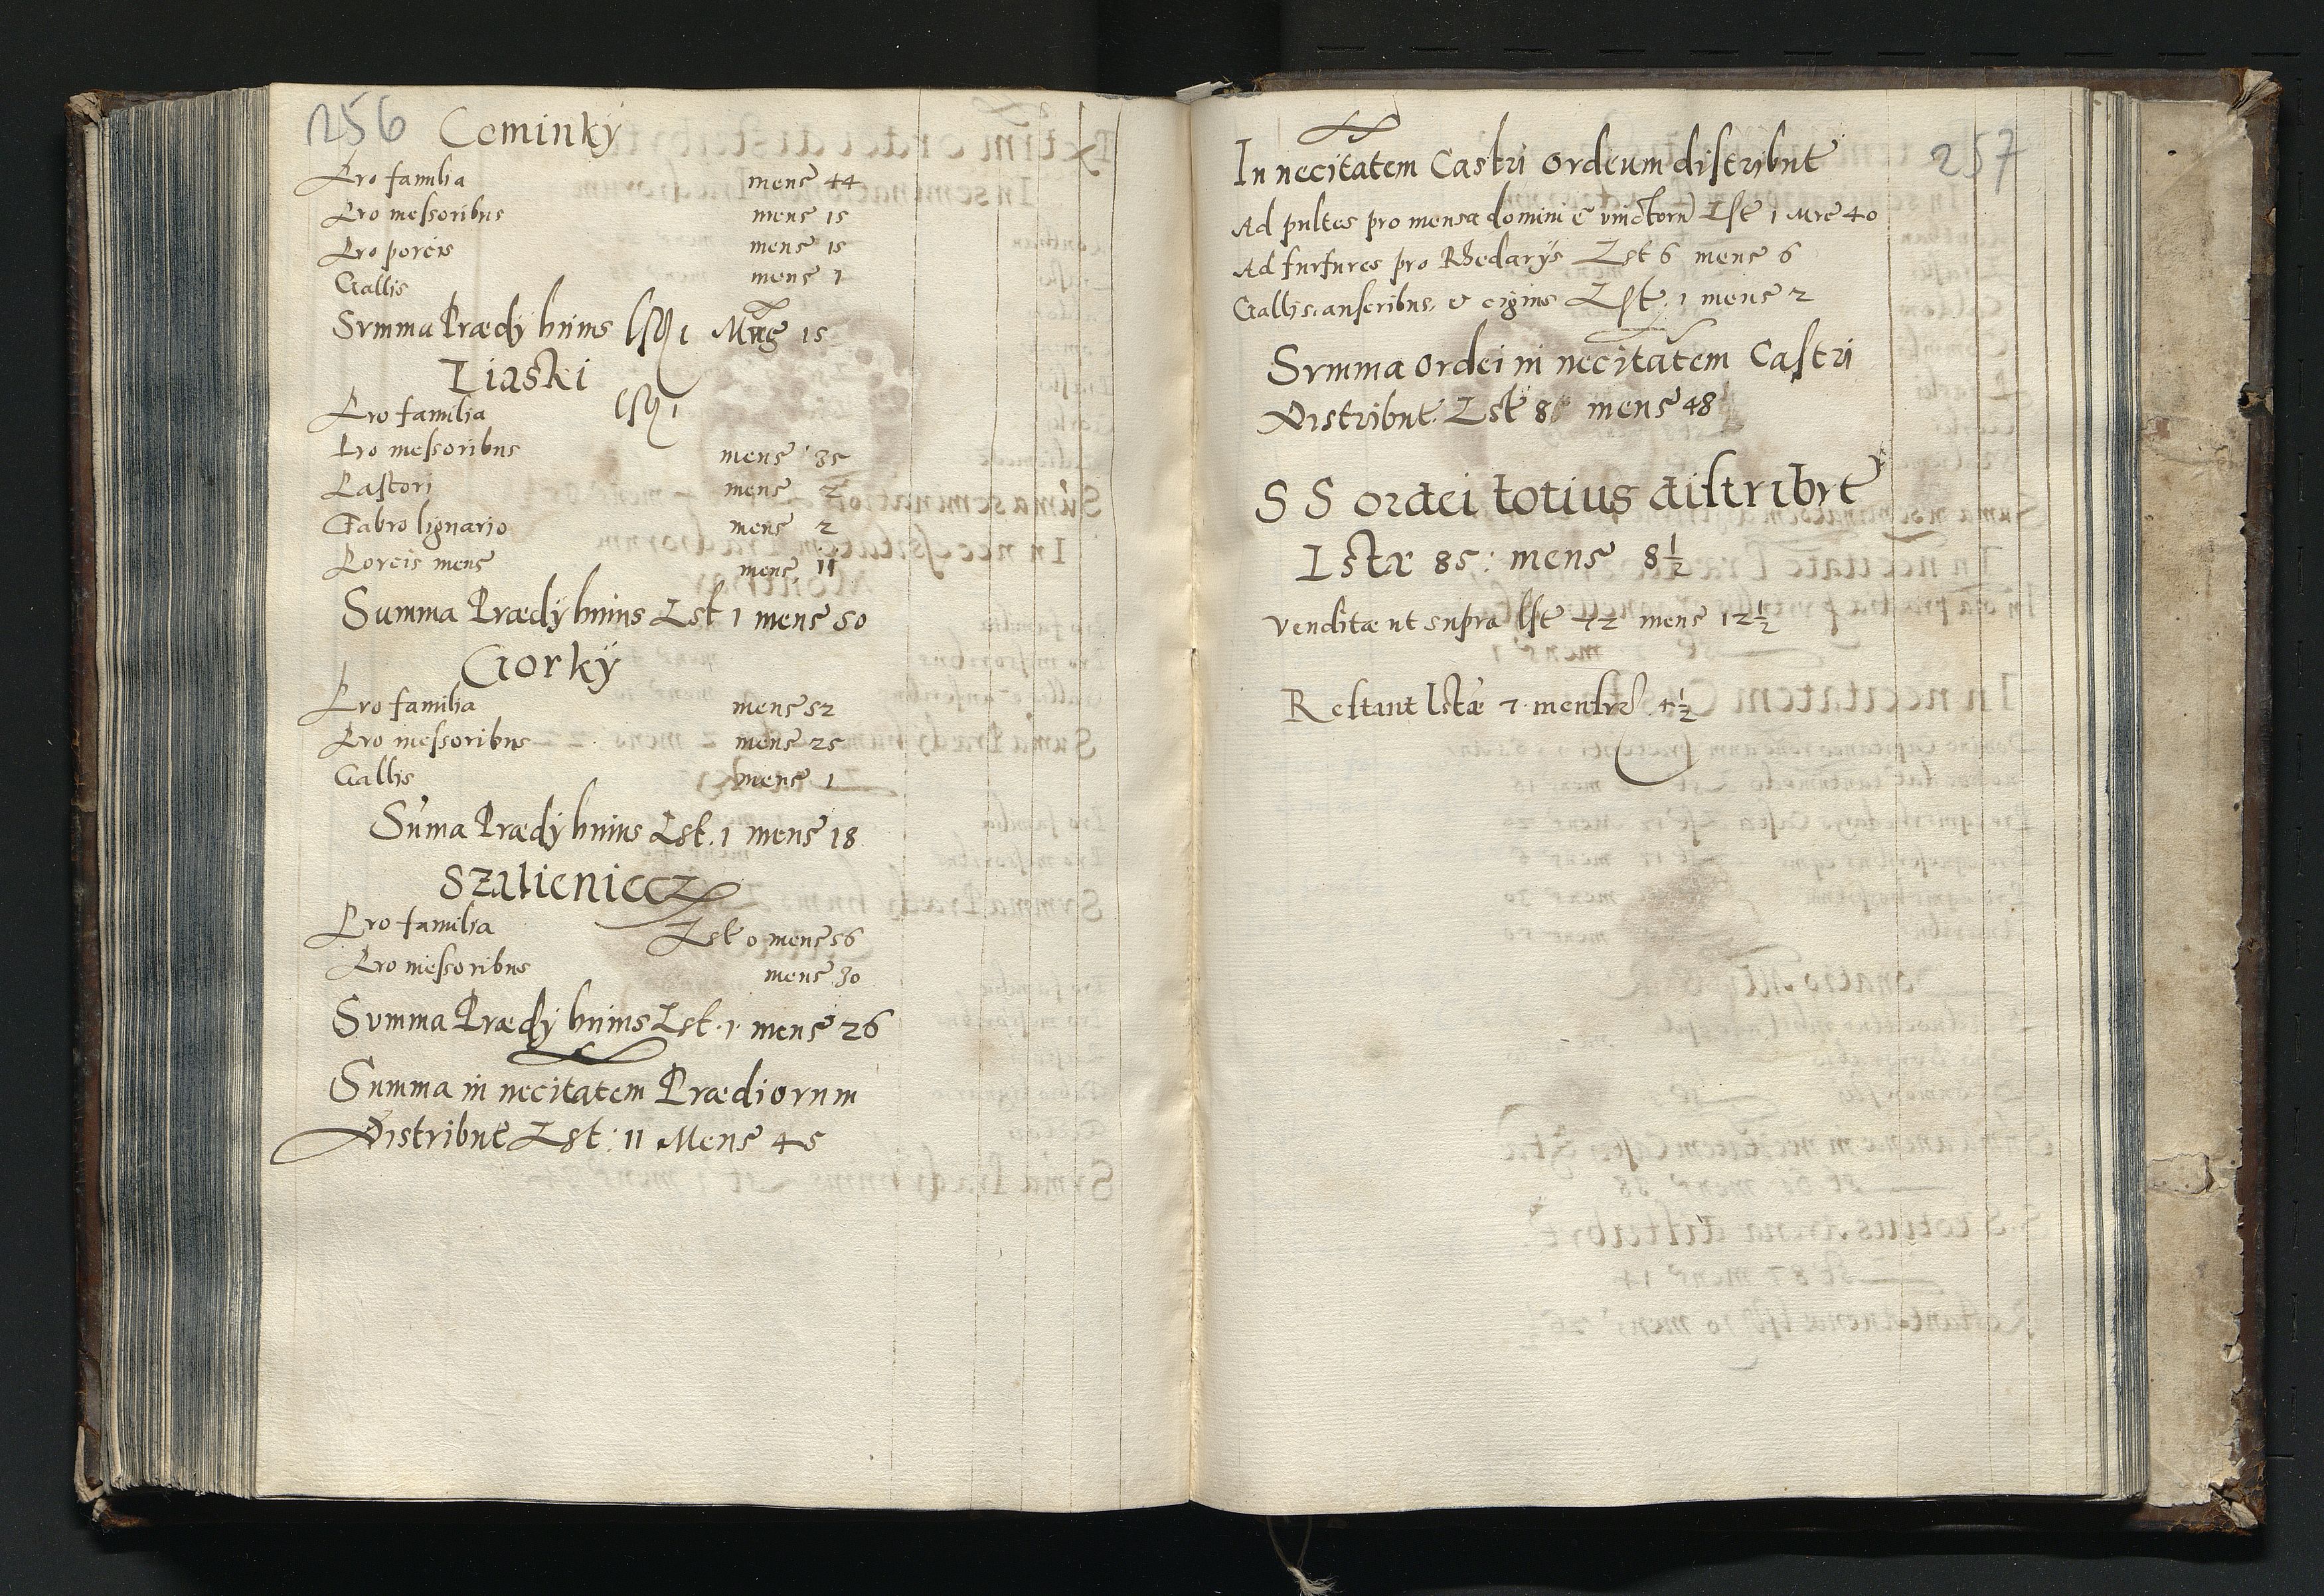 256 Cominkÿ
Pro familia mens 44
Pro messoribus mens 15
Pro porcis mens 15
Gallis mens 1
Summa Prædÿ huius lst 1 Mens 15
Liaski
Pro familia lst 1
Pro messoribus mens 35
Pastori mens 2
Fabro lignario mens 2
Porcis mens mens 11
Summa Prædÿ huius Lst 1 mens 50
Gorkÿ
Pro familia mens 52
Pro messoribus mens 25
Gallis mens 1
Sum̄a Prædÿ huius Lst. 1 mens 18
Szalieniecz
Pro familia Lst 0 mens 56
Pro messoribus mens 30
Summa Prædÿ huius Lst. 1. mens 26
Summa in necitatem Prædiorum
Distribut Lst: 11 Mens 45
257
In necitatem Castri ordeum distribut
Ad pultes pro mensa domini & vinctoru) Lst 1 Mre 40
Ad furfures pro Rhedarÿs Lst 6 mens 6
Gallis, anseribus, & cignis Lst. 1 mens 2
Summa ordei in necitatem Castri
Distribut. Lst 8 mens 48
S S ordei totius distribut
Lstæ 85: mens 8½
venditæ ut supra lst 42 mens 12½
Restant lstæ 7. mensur 4½